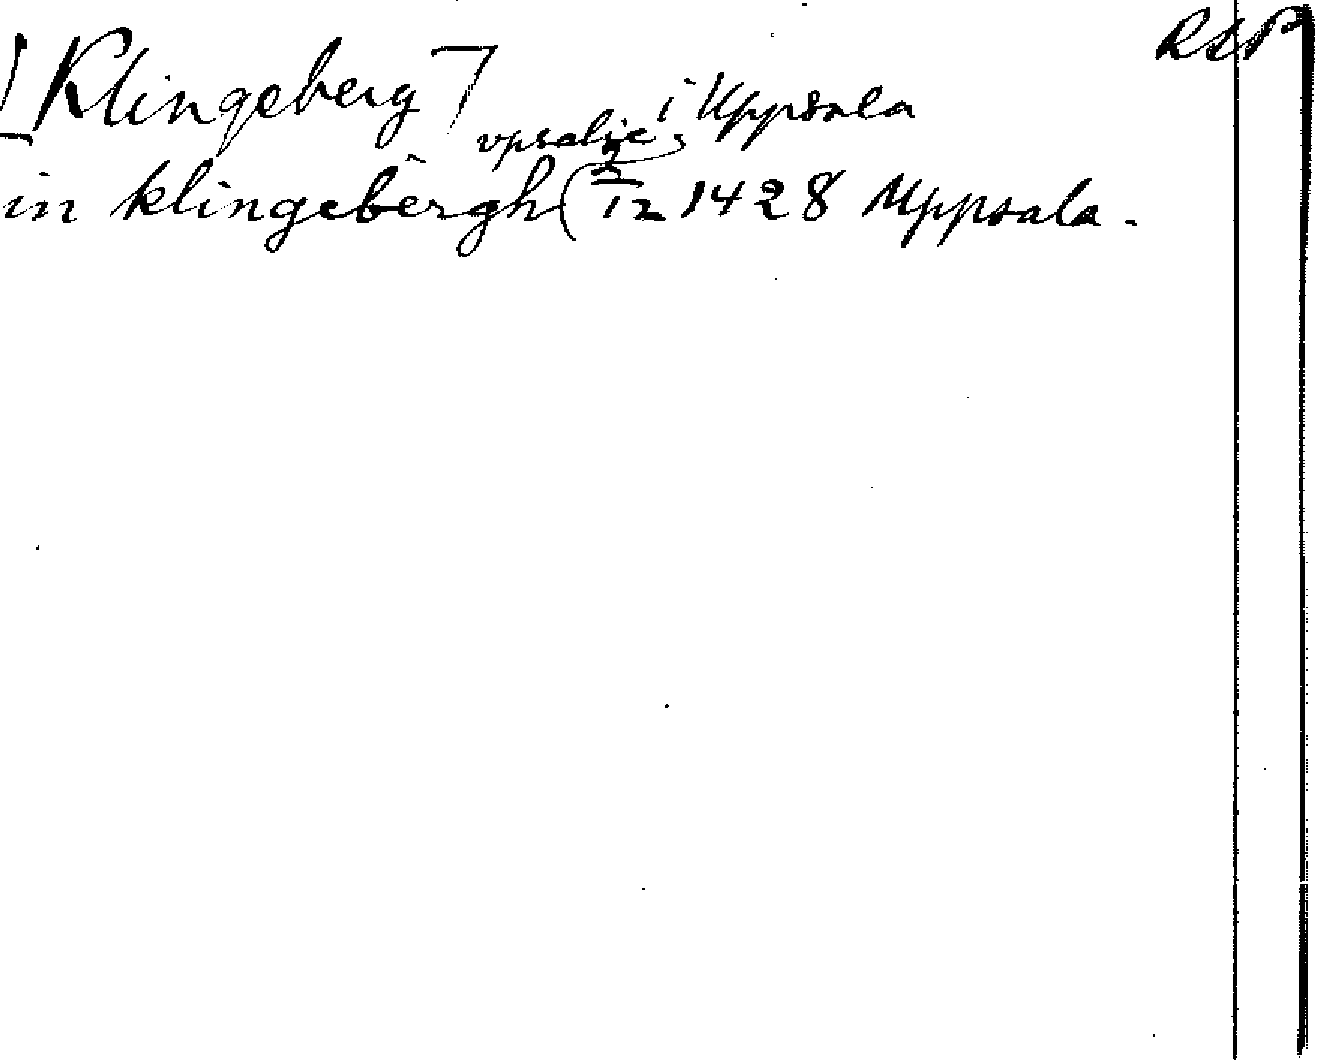 RSP
[Klingeberg] i Uppsala
vpsalie
in klingebergh (2/12 1428 Uppsala.